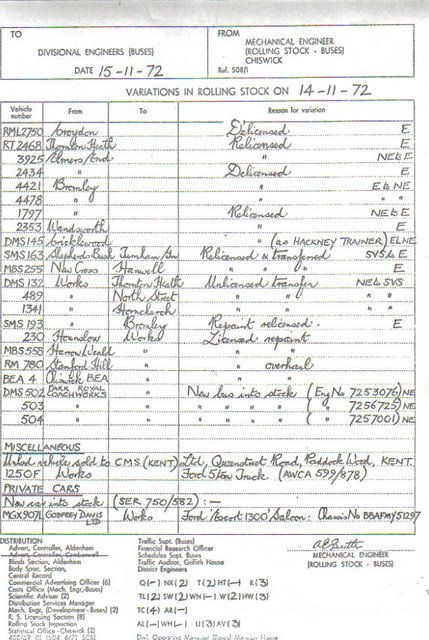 TO
FROM
DIVISIONAL ENGINEERS (BUSES)
MECHANICAL ENGINEER
(ROLLING STOCK - BUSES)
CHISWICK
DATE 15-11-72
Ref. 508/1
VARIATIONS IN ROLLING STOCK ON 14-11-72
Vehicle number From To Reason for variation
RML2750 Croydon Delicensed E
RT2468 Thornton Heath Relicensed E
3925 Elmers End " NE & E
2434 " Delicensed E
4421 Bromley " E & NE
4478 " " " "
1797 " Relicensed NE & E
2353 Wandsworth " E
DMS145 Cricklewood " (as HACKNEY TRAINER) E&NE
SMS163 Shepherds Bush Turnham Gn Relicensed & transferred SVS & E
MBS255 New Cross Hanwell " " " E
DMS132 Works Thornton Heath Unlicensed transfer NE & SVS
489 " North Street " " " "
1341 " Hornchurch " " " & E
SMS193 " Bromley Repaint relicensed. E
230 Hounslow Works Licensed repaint
MBS558 Harrow Weald " " "
RM780 Stamford Hill " " overhaul
BEA 4 Chiswick BEA " " "
DMS502 PARK ROYAL COACHWORKS " New bus into stock (Eng No 7253076) NE
503 " " " " " " ( " 7256725) NE
504 " " " " " " ( " 7257001) NE
MISCELLANEOUS
Unlicd vehicle sold to CMS (KENT) Ltd, Queenstreet Road, Paddock Wood, KENT.
1250F Works Ford 5 ton Truck (AWCA 599/878)
PRIVATE CARS
New car into stock (SER 750/582) :-
MGX907L GODFREY DAVIS LTD Works Ford 'Escort 1300' Saloon: Chassis No BBAFMY51297
DISTRIBUTION
Advert. Controller, Aldenham
Advert. Controller, Camberwell
Blinds Section, Aldenham
Body Spec. Section
Central Record
Commercial Advertising Officer (6)
Costs Office (Mech. Engr.-Buses)
Scientific Adviser (2)
Distribution Services Manager
Mech. Engr. (Development - Buses) (2)
R. S. Licensing Section (8)
Rolling Stock Inspection
Statistical Office - Chiswick (2)
Traffic Supt. (Buses)
Financial Research Officer
Schedules Supt. Buses
Traffic Auditor, Griffith House
District Engineers
Q(-) NX(2) T(2) HT(-) R(3)
TL(2) SW(2) WN(-) W(2) HW(3)
TC(4) AR(-)
AL(-) WH(-) U(3) AV(3)
MECHANICAL ENGINEER
(ROLLING STOCK - BUSES)